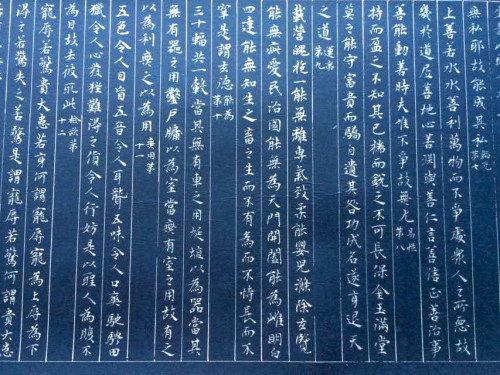 無私耶故能成其私 韜光第七
上善若水水善利萬物而不爭處衆人之所惡故
幾於道居善地心善淵與善仁言善信正善治事
善能動善時夫唯不爭故無尤 易性第八
持而盈之不知其已揣而銳之不可長保金玉滿堂
莫之能守富貴而驕自遺其咎功成名遂身退天
之道 運夷第九
載營魄抱一能無離專氣致柔能嬰兒滌除玄覽
能無疵愛民治國能無為天門開闔能為雌明白
四達能無知生之畜之生而不有為而不恃長而不
宰是謂玄德 能為第十
三十輻共一轂當其無有車之用埏埴以為器當其
無有器之用鑿戶牖以為室當無有室之用故有之
以為利無之以為用 無用第十一
五色令人目盲五音令人耳聾五味令人口爽馳騁田
獵令人心發狂難得之貨令人行妨是以聖人為腹不
為目故去彼取此 檢欲第十二
寵辱若驚貴大患若身何謂寵辱寵為上辱為下
得之若驚失之若驚是謂寵辱若驚何謂貴大患